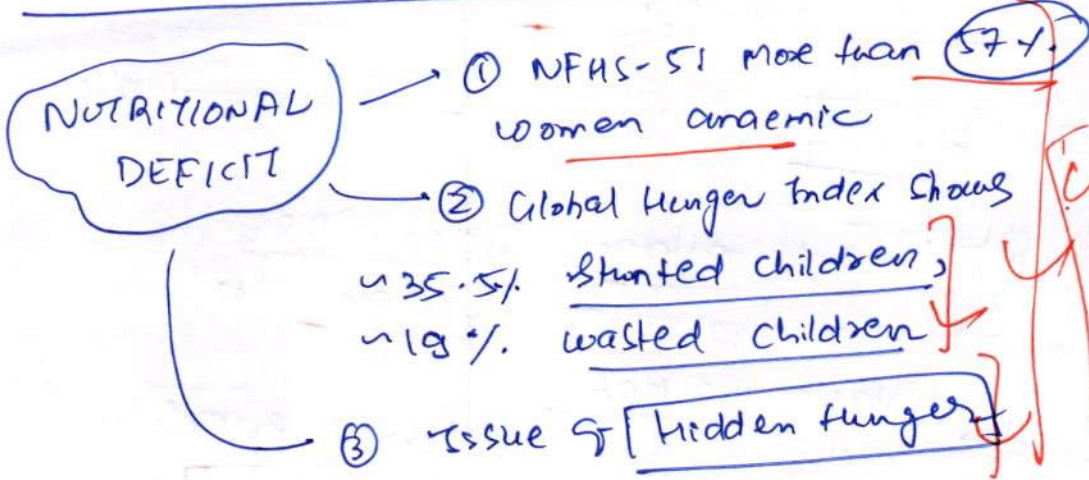 NUTRITIONAL
DEFICIT
① NFHS-5: More than 57%
women anaemic
② Global Hunger Index shows
~35.5% stunted children,
~19%. wasted children
③ Issue of Hidden Hunger